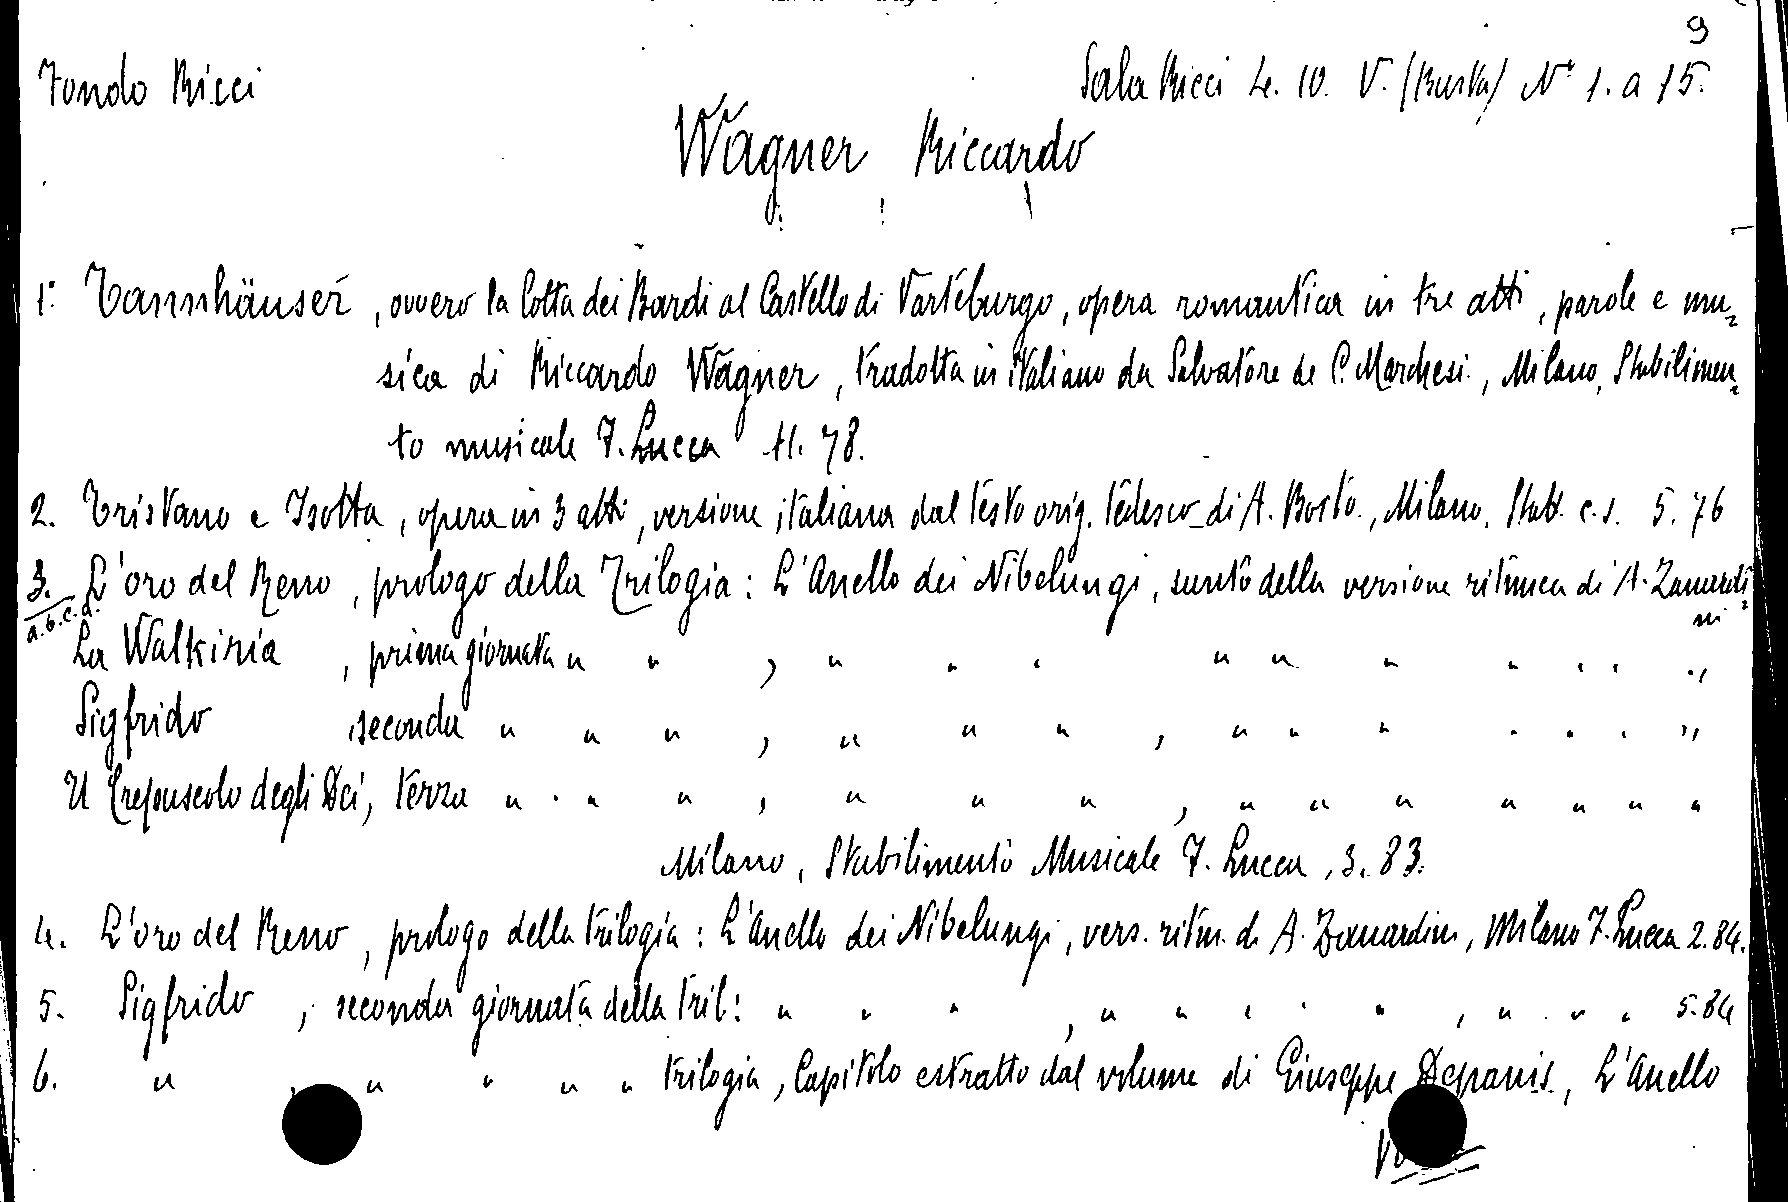 9
Fondo Ricci Sala Ricci 4. 10. V. (Busta) N° 1. a 15.
Wagner, Riccardo
1° Tannhäuser, ovvero la lotta dei Bardi al Castello di Varteburgo, opera romantica in tre atti, parole e mu=
sica di Riccardo Wagner, tradotta in italiano da Salvatore de C. Marchesi, Milano, Stabilimen=
to musicale F. Lucca 11. 78.
2. Tristano e Isotta, opera in 3 atti, versione italiana dal testo orig. tedesco di A. Boito., Milano. Stab. c.s. 5. 76
3. L'oro del Reno, prologo della Trilogia: L'Anello dei Nibelungi, sunto della versione ritmica di A. Zanardi=
a.b.c.d. ni
La Walkiria, prima giornata " " , " " " " " " " " " "
Sigfrido seconda " " " , " " " , " " " " " " "
Il Crepuscolo degli Dei, terza " " " " , " " " , " " " " " " "
Milano, Stabilimento Musicale F. Lucca, 3. 83.
4. L'oro del Reno, prologo della trilogia: L'Anello dei Nibelungi, vers. ritm. di A. Zanardini, Milano F. Lucca 2.84.
5. Sigfrido, seconda giornata della tril: " " " , " " " " " , " " " " 5.84
6. " , " " " " trilogia, Capitolo estratto dal volume di Giuseppe Depanis, L'Anello